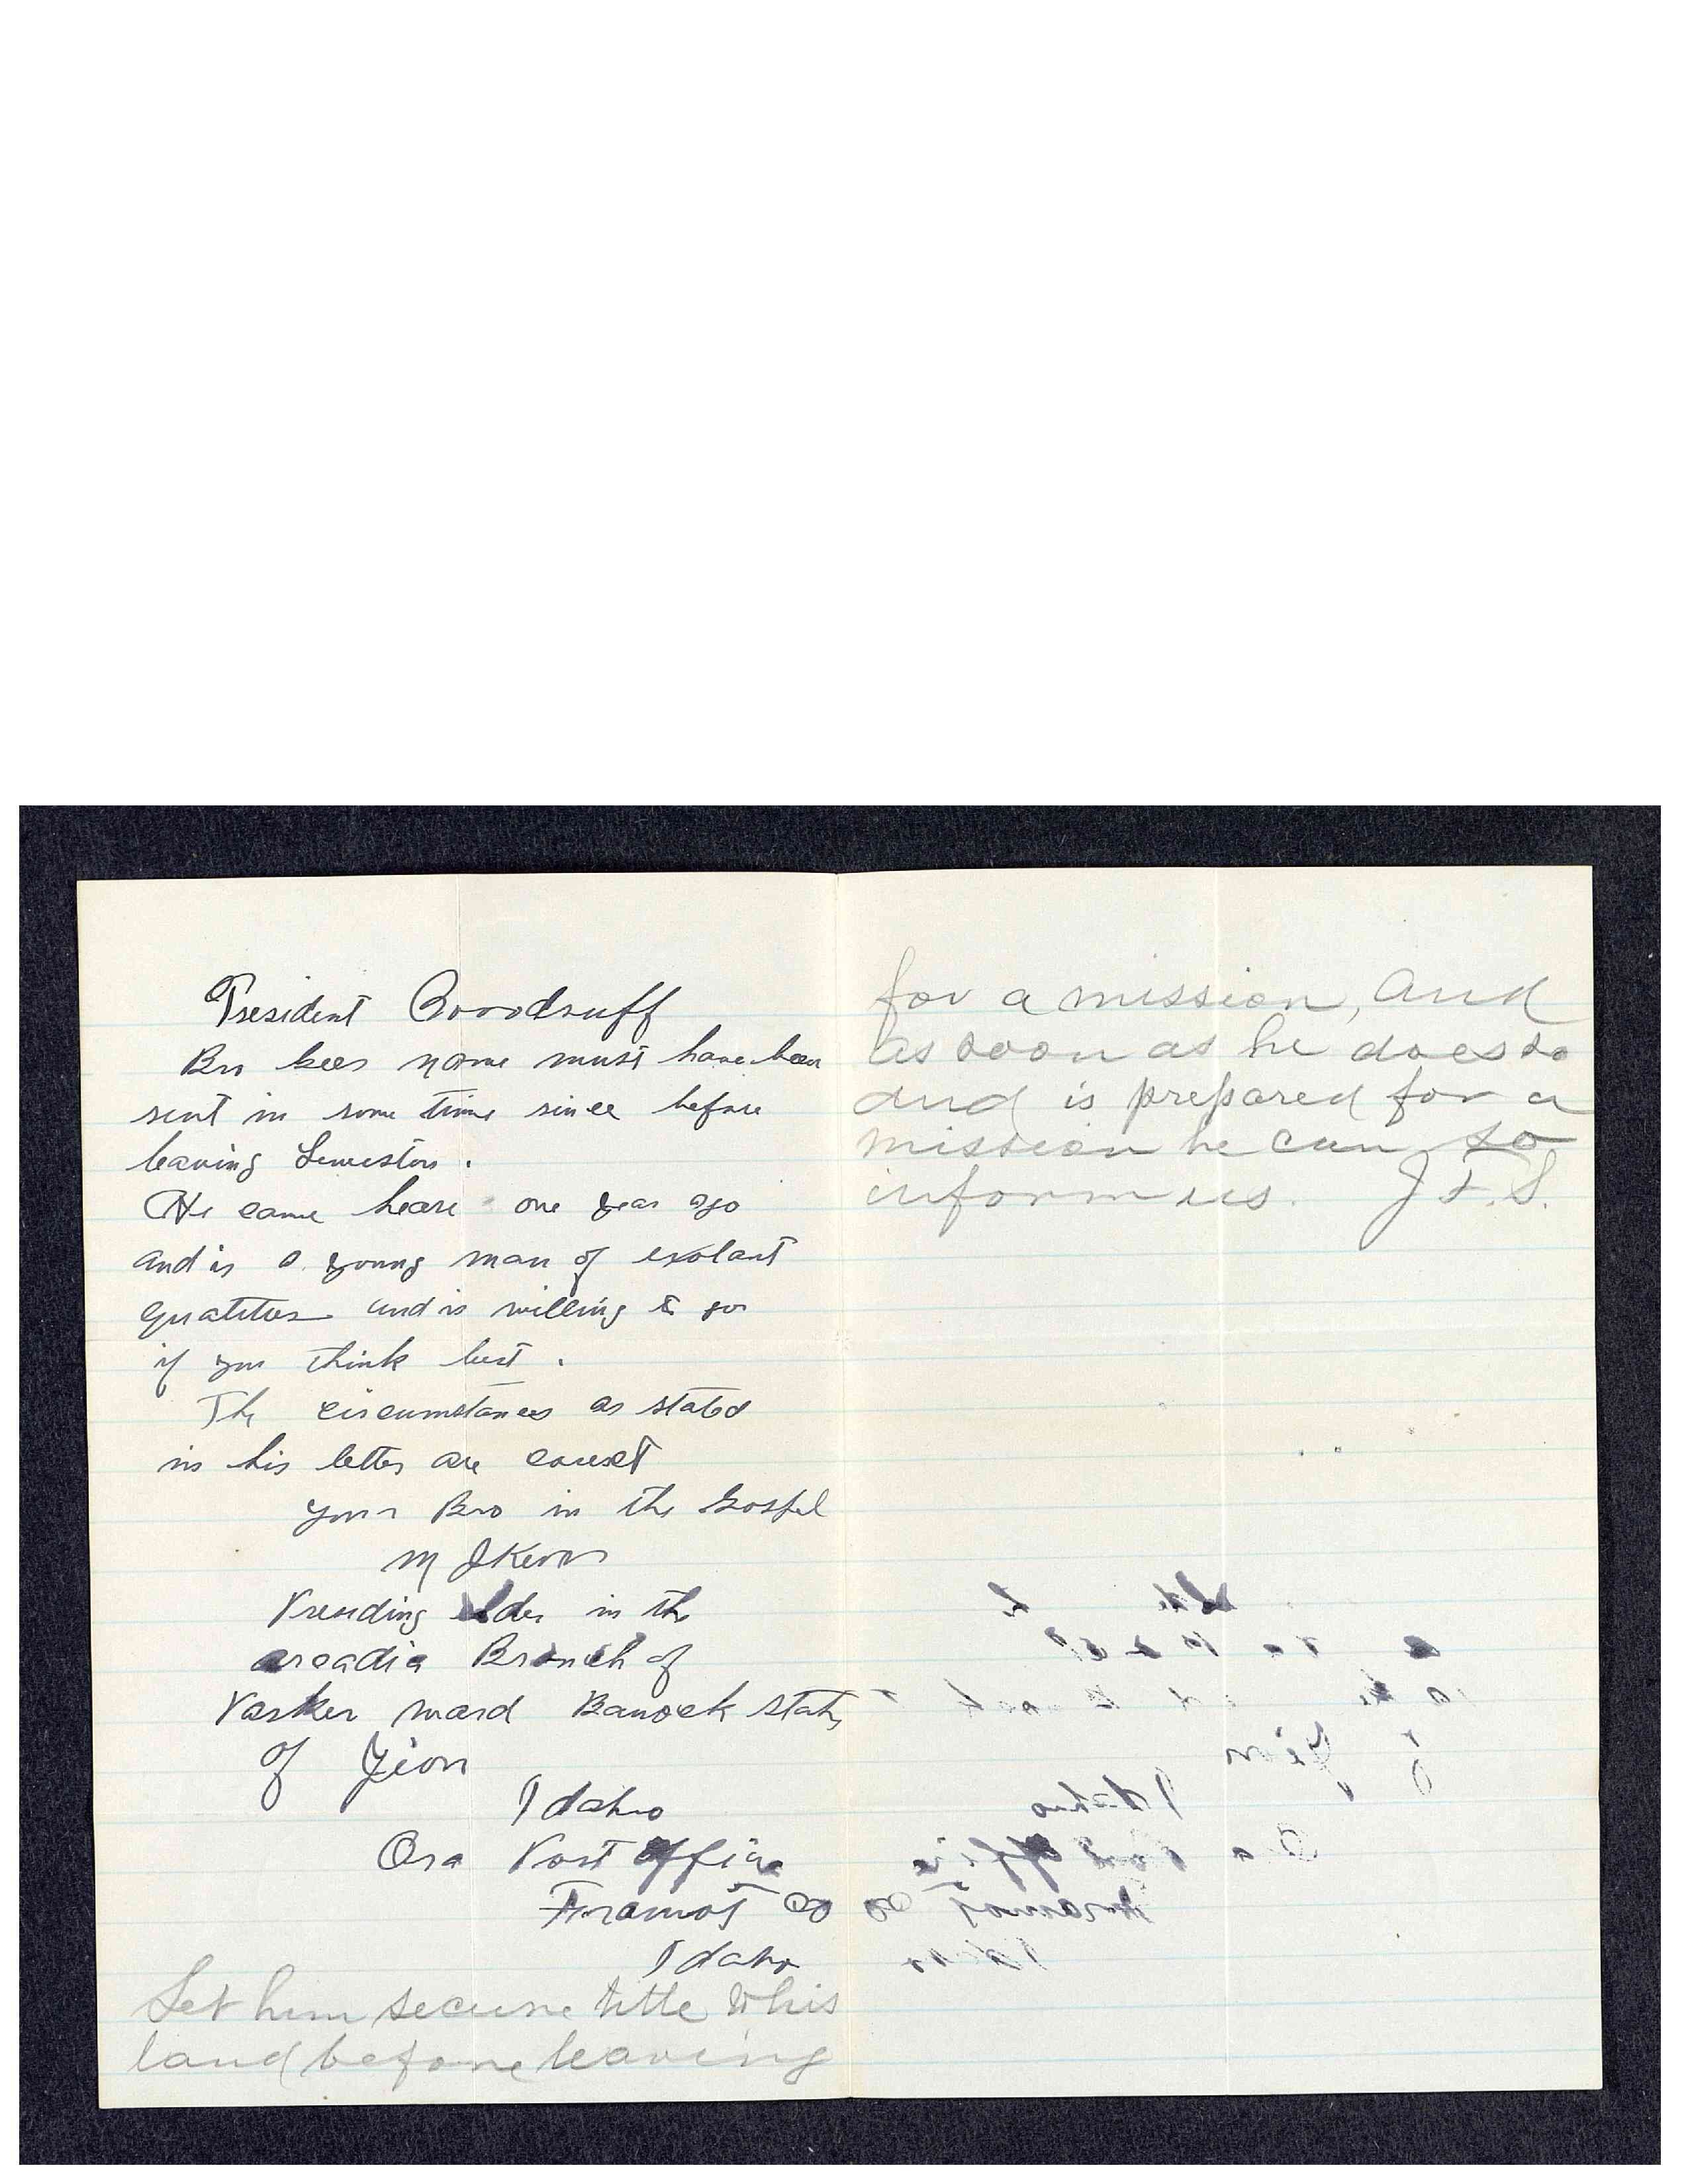 President Woodruff
Bro Lees name must have been
sent in some time since before
leaving Lewiston.
He came heare one year ago
and is a young man of exolant
qualities and is willing to go
if you think best.
The circumstances as stated
in his letter are correct
your Bro in the Gospel
M J Kerr
Presiding Elder in the
arcadia Branch of
Parker ward Banock State
of Zion
Idaho
Ora Post office
Fremont Co
Idaho
Let him secure title to his
land before leaving
for a mission, and
as soon as he does so
and is prepared for a
mission he can so
inform us. J. F. S.